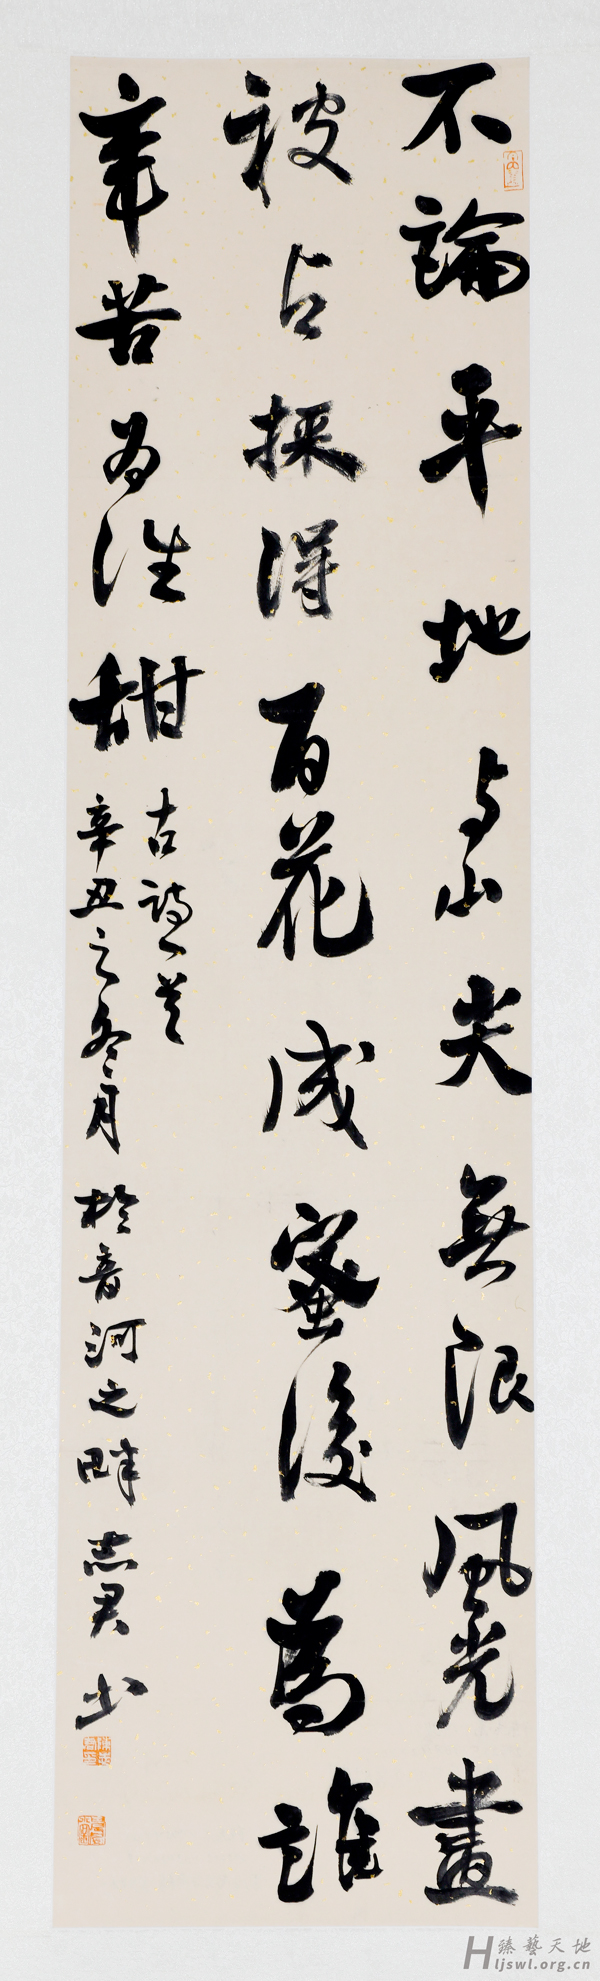 不論平地与山尖無限風光畫
被占採得百花成蜜後為誰
辛苦为谁甜
古詩一首
辛丑之冬月於音河之畔志君书
臻藝天地
Hljswl.org.cn